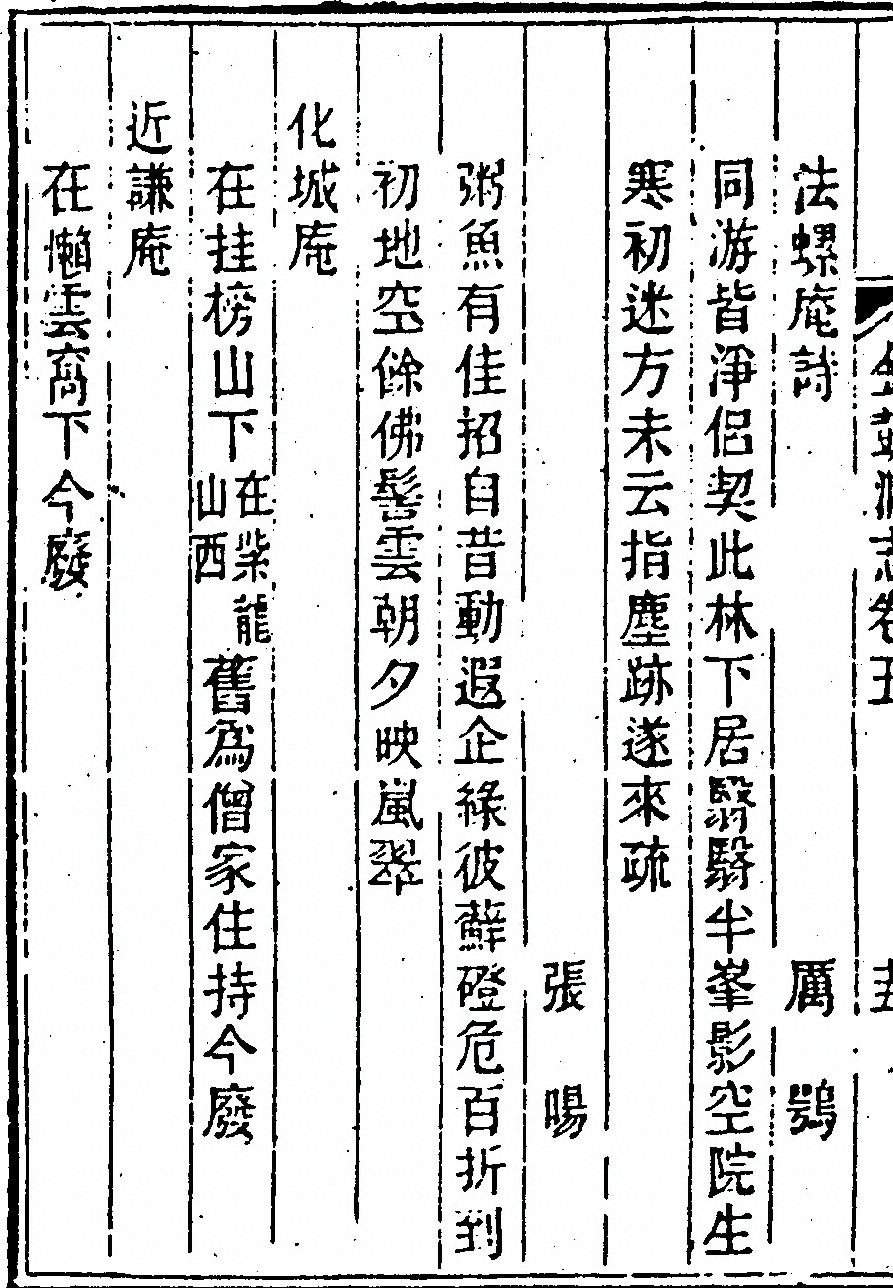 法螺庵詩　厲鶚
同游皆淨侶契此林下居翳翳半峯影空院生
寒初迷方未云指塵跡遂來疏
張暘
粥魚有佳招自昔動遐企緣彼蘚磴危百折到
初地空餘佛髻雲朝夕映嵐翠
化城庵
在挂榜山下在柴龍山西舊爲僧家住持今廢
近謙庵
在懶雲窩下今廢